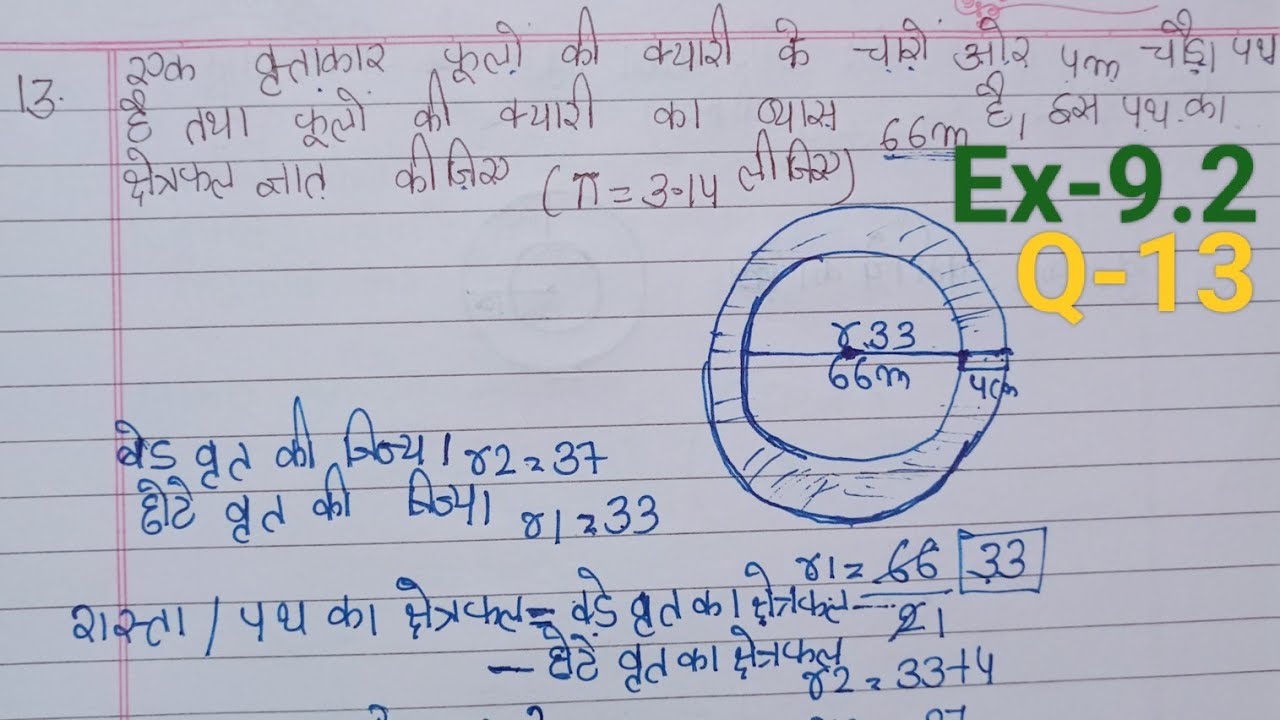 13. एक वृत्ताकार फूलों की क्यारी के चारों ओर 4m चौड़ा पथ
है तथा फूलों की क्यारी का व्यास 66m है, इस पथ का
क्षेत्रफल ज्ञात कीजिए (π = 3.14 लीजिए)
Ex-9.2
Q-13
r.33
66m
4cm
बेड वृत की त्रिज्या r2 = 37
छोटे वृत की त्रिज्या r1 = 33
r1 = 66 33
21
रास्ता / पथ का क्षेत्रफल = बड़े वृत का क्षेत्रफल
- छोटे वृत का क्षेत्रफल
r2 = 33+4